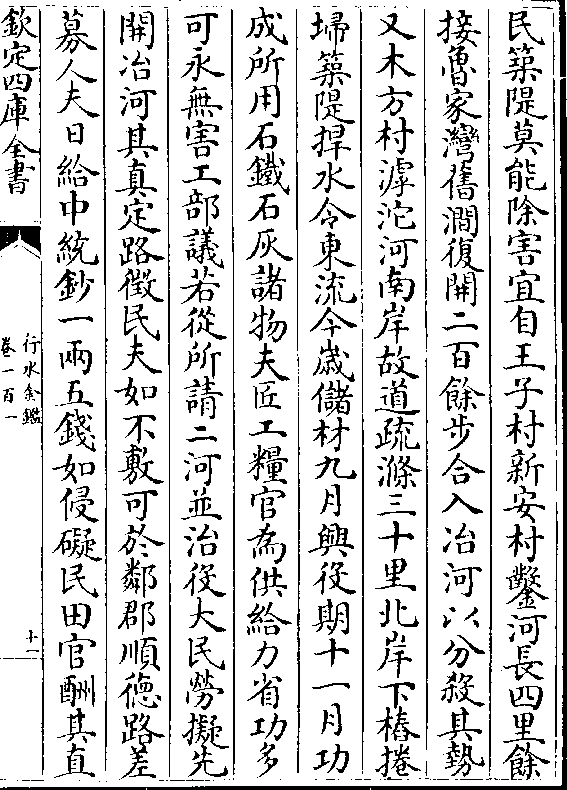 民築隄莫能除害宜自王子村新安村鑿河長四里餘
接魯家灣舊澗復開二百餘步合入冶河以分殺其勢
又木方村滹沱河南岸故道疏滌三十里北岸下樁捲
埽築隄捍水令東流今歲儲材九月興役期十一月功
成所用石鐵石灰諸物夫匠工糧官為供給力省功多
可永無害工部議若從所請二河並治役大民勞擬先
開冶河其真定路徵民夫如不敷可於鄰郡順德路差
募人夫日給中統鈔一兩五錢如侵礙民田官酬其直
欽定四庫全書
行水金鑑
卷一百一
十一